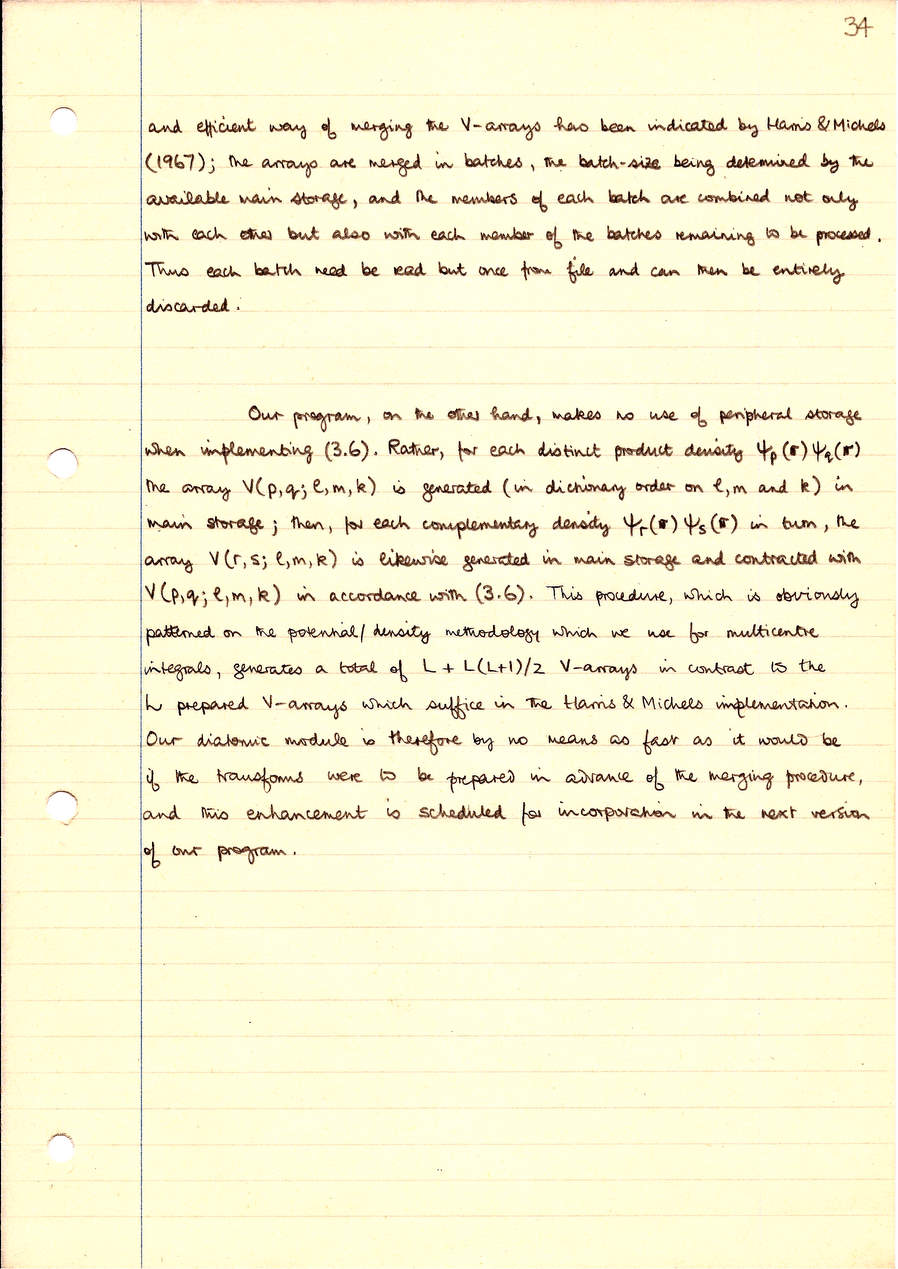 34
and efficient way of merging the V-arrays has been indicated by Harris & Michels
(1967); the arrays are merged in batches, the batch-size being determined by the
available main storage, and the members of each batch are combined not only
with each other but also with each member of the batches remaining to be processed.
Thus each batch need be read but once from file and can then be entirely
discarded.
Our program, on the other hand, makes no use of peripheral storage
when implementing (3.6). Rather, for each distinct product density ψp(r)ψq(r)
the array V(p,q; l,m,k) is generated (in dictionary order on l,m and k) in
main storage; then, for each complementary density ψr(r)ψs(r) in turn, the
array V(r,s; l,m,k) is likewise generated in main storage and contracted with
V(p,q; l,m,k) in accordance with (3.6). This procedure, which is obviously
patterned on the potential/density methodology which we use for multicentre
integrals, generates a total of L + L(L+1)/2 V-arrays in contrast to the
L prepared V-arrays which suffice in the Harris & Michels implementation.
Our diatomic module is therefore by no means as fast as it would be
if the transforms were to be prepared in advance of the merging procedure,
and this enhancement is scheduled for incorporation in the next version
of our program.